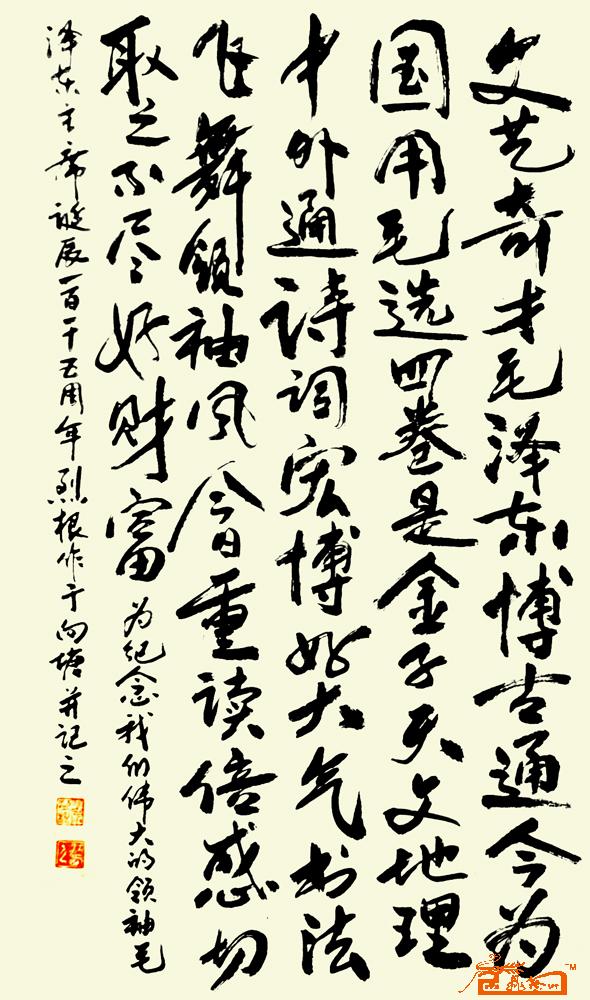 文艺奇才毛泽东博古通今为
国用毛选四卷是金子天文地理
中外通诗词宏博好大气书法
飞舞领袖风今日重读倍感切
取之不尽好财富为纪念我们伟大的领袖毛
泽东主席诞辰一百一十五周年烈根作于向塘并记之